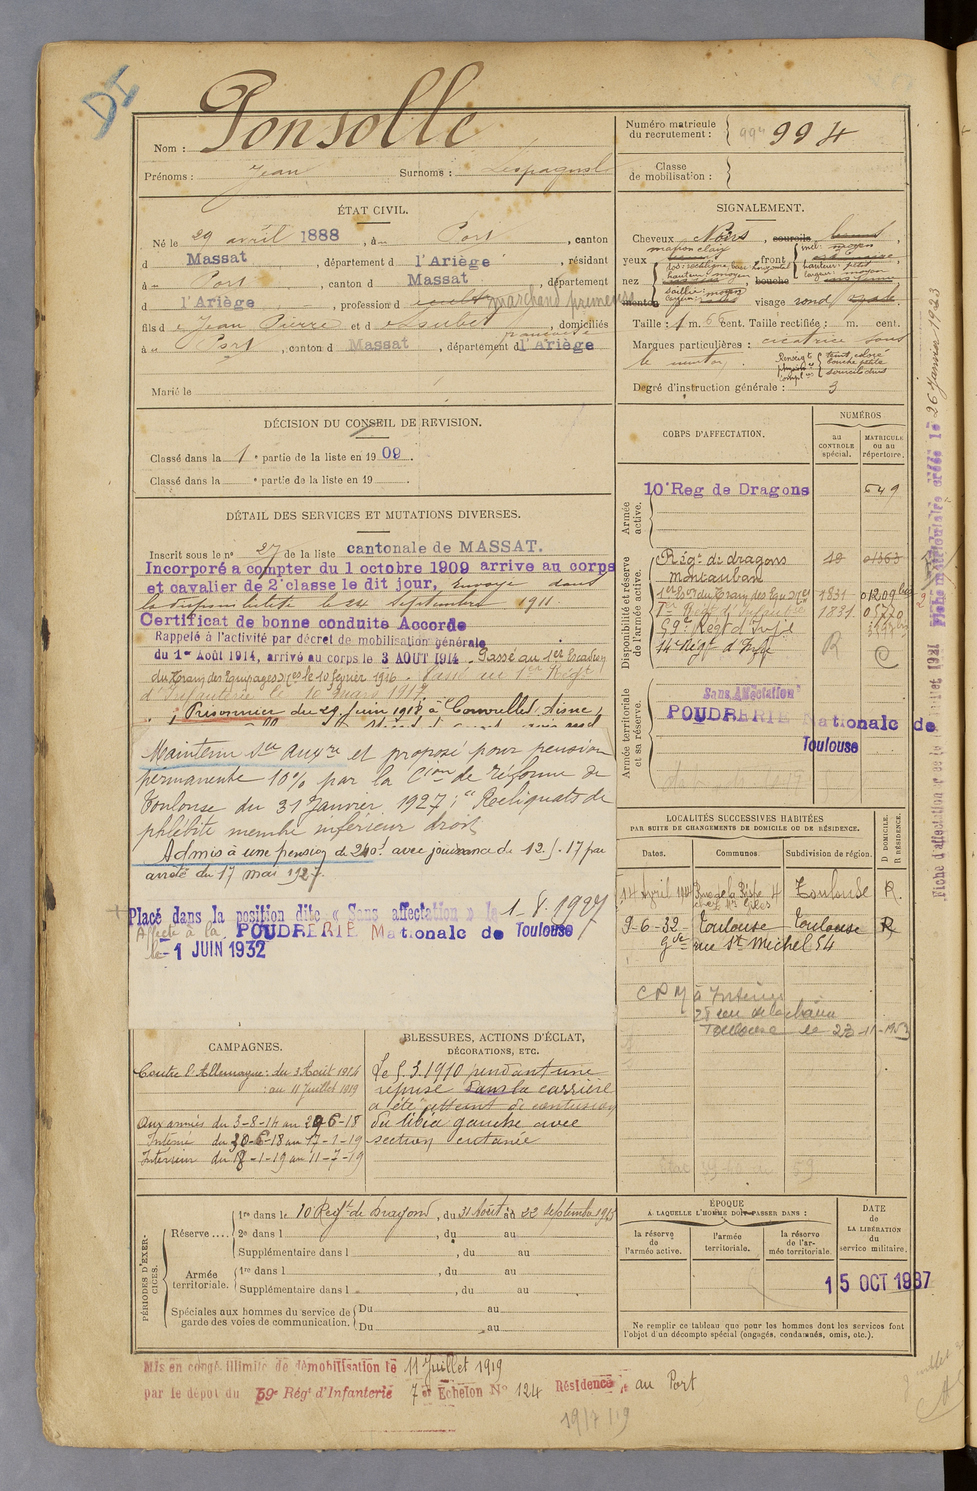 DI
Nom : Ponsolle
Prénoms : Jean Surnoms : Lespagnol
Numéro matricule du recrutement : 994
Classe de mobilisation :
ÉTAT CIVIL.
Né le 29 avril 1888, à Port, canton
d Massat, département d l'Ariège, résidant
à Port, canton d Massat, département
d l'Ariège, profession d marchand primeurs
fils de Jean Pierre et d Loubet françoise, domiciliés
à Port, canton d Massat, département d l'Ariège
Marié le
DÉCISION DU CONSEIL DE REVISION.
Classé dans la 1e partie de la liste en 1909.
Classé dans la e partie de la liste en 19
DÉTAIL DES SERVICES ET MUTATIONS DIVERSES.
Inscrit sous le n° 27 de la liste cantonale de MASSAT.
Incorporé a compter du 1 octobre 1909 arrive au corps
et cavalier de 2e classe le dit jour, Envoyé dans
la disponibilité le 24 septembre 1911.
Certificat de bonne conduite Accorde
Rappelé à l'activité par décret de mobilisation générale
du 1er Août 1914, arrivé au corps le 3 AOUT 1914. Passé au 1er Escadron
du Train des Equipages le 10 février 1916. Passé au Régt
d'Infanterie le 10 mars 1917
Prisonnier du 29 Juin 1918 à (Aisne)
Maintenu Sce auxre et proposé pour pension
permanente 10% par la Cion de réforme de
Toulouse du 31 Janvier 1927 ; "Reliquats de
phlébite membre inférieur droit
Admis à une pension de 240f. avec jouissance de 12.5.17 par
arrêté du 17 mai 1927.
Placé dans la position dite « Sans affectation » le 1-8-1927
Affecté à la POUDRERIE Nationale de Toulouse
le -1 JUIN 1932
SIGNALEMENT.
Cheveux Noirs, sourcils
yeux marron clair, front incl: moyen
hauteur: petit
largeur: moyen
nez dos: rectiligne, base: horizontal
hauteur: moyen
saillie: moyen
largeur: moyen
bouche
menton visage rond
Taille : 1 m. 66 cent. Taille rectifiée : m. cent.
Marques particulières : cicatrice sous
le menton.
Renseigts physiq. compl. teint coloré
bouche petite
sourcils drus
Degré d'instruction générale : 3
CORPS D'AFFECTATION.
NUMÉROS
au CONTROLE spécial.
MATRICULE ou au répertoire.
Armée active.
10e Reg de Dragons 649
Disponibilité et réserve de l'armée active.
Régt de dragons 10 01363
Montauban
1er Esc du Train des Equipages 1831 01209
Régt d'Infanterie 1831
59e Régt d'Infie
14e Régt d'Infie R C
Armée territoriale et sa réserve.
Sans Affectation
POUDRERIE Nationale de
Toulouse
LOCALITÉS SUCCESSIVES HABITÉES
PAR SUITE DE CHANGEMENTS DE DOMICILE OU DE RÉSIDENCE.
Dates. Communes. Subdivision de région. D DOMICILE. R RÉSIDENCE.
14 avril 1914 Rue de la 4 Toulouse R.
9-6-32 Toulouse Toulouse R
gde rue St Michel 54
CPM à
28 rue de la chaine
Toulouse le 23-11-1953
CAMPAGNES.
Contre l'Allemagne : du 3 Août 1914
au 11 Juillet 1919
Aux armées du 3-8-14 au 29-6-18
Interné du 30-6-18 au 17-1-19
Intérieur du 18-1-19 au 11-7-19
BLESSURES, ACTIONS D'ÉCLAT,
DÉCORATIONS, ETC.
Le 5.3.1910 pendant une
reprise dans la carrière
a été atteint de contusion
du tibia gauche avec
section cutanée
PÉRIODES D'EXERCICES.
Réserve ....
1re dans le 10 Regt de Dragons, du 31 Août au 22 Septembre 1913
2e dans l , du au
Supplémentaire dans l , du au
Armée territoriale.
1re dans l , du au
Supplémentaire dans l , du au
Spéciales aux hommes du service de
garde des voies de communication.
Du au
Du au
ÉPOQUE
A LAQUELLE L'HOMME DOIT PASSER DANS :
la réserve de l'armée active.
l'armée territoriale.
la réserve de l'armée territoriale.
DATE DE LA LIBÉRATION du service militaire.
15 OCT 1937
Ne remplir ce tableau que pour les hommes dont les services font
l'objet d'un décompte spécial (engagés, condamnés, omis, etc.).
Mis en congé illimité de démobilisation le 11 Juillet 1919
par le dépot du 59e Régt d'Infanterie 7e Echelon N° 124 Résidence au Port
Fiche matriculaire créée le 26 Janvier 1923